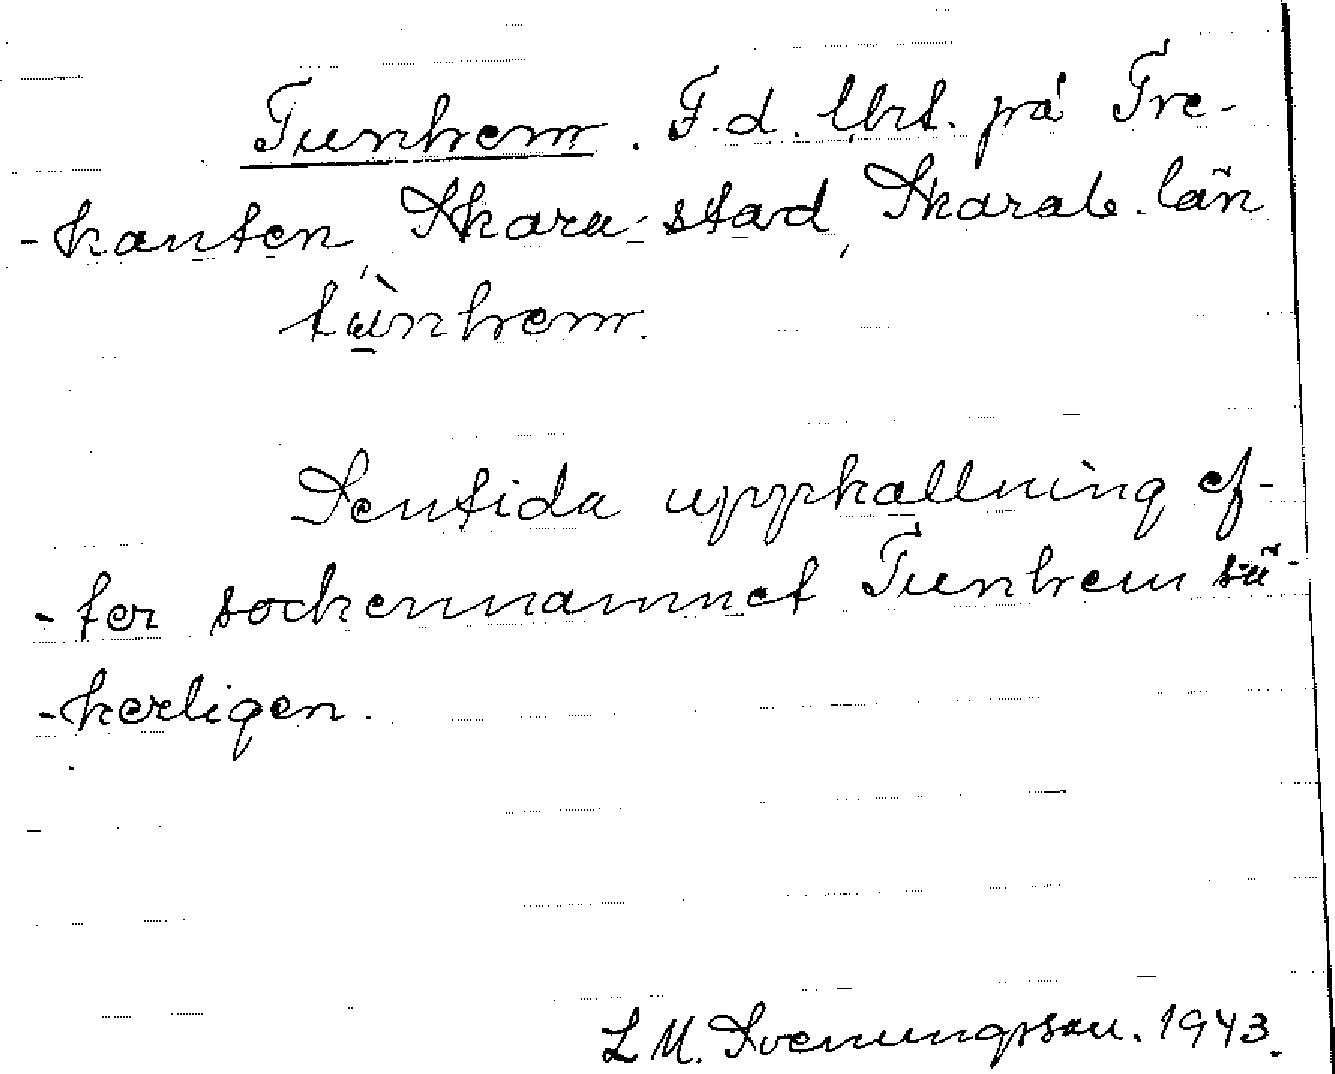 Tunhem. F.d. lht. på Tre-
-kanten, Skara stad, Skarab. län
tu̠̇̀nhem.
Sentida uppkallning ef-
-ter sockennamnet Tunhem sä-
-kerligen.
L M. Svenungsson. 1943.